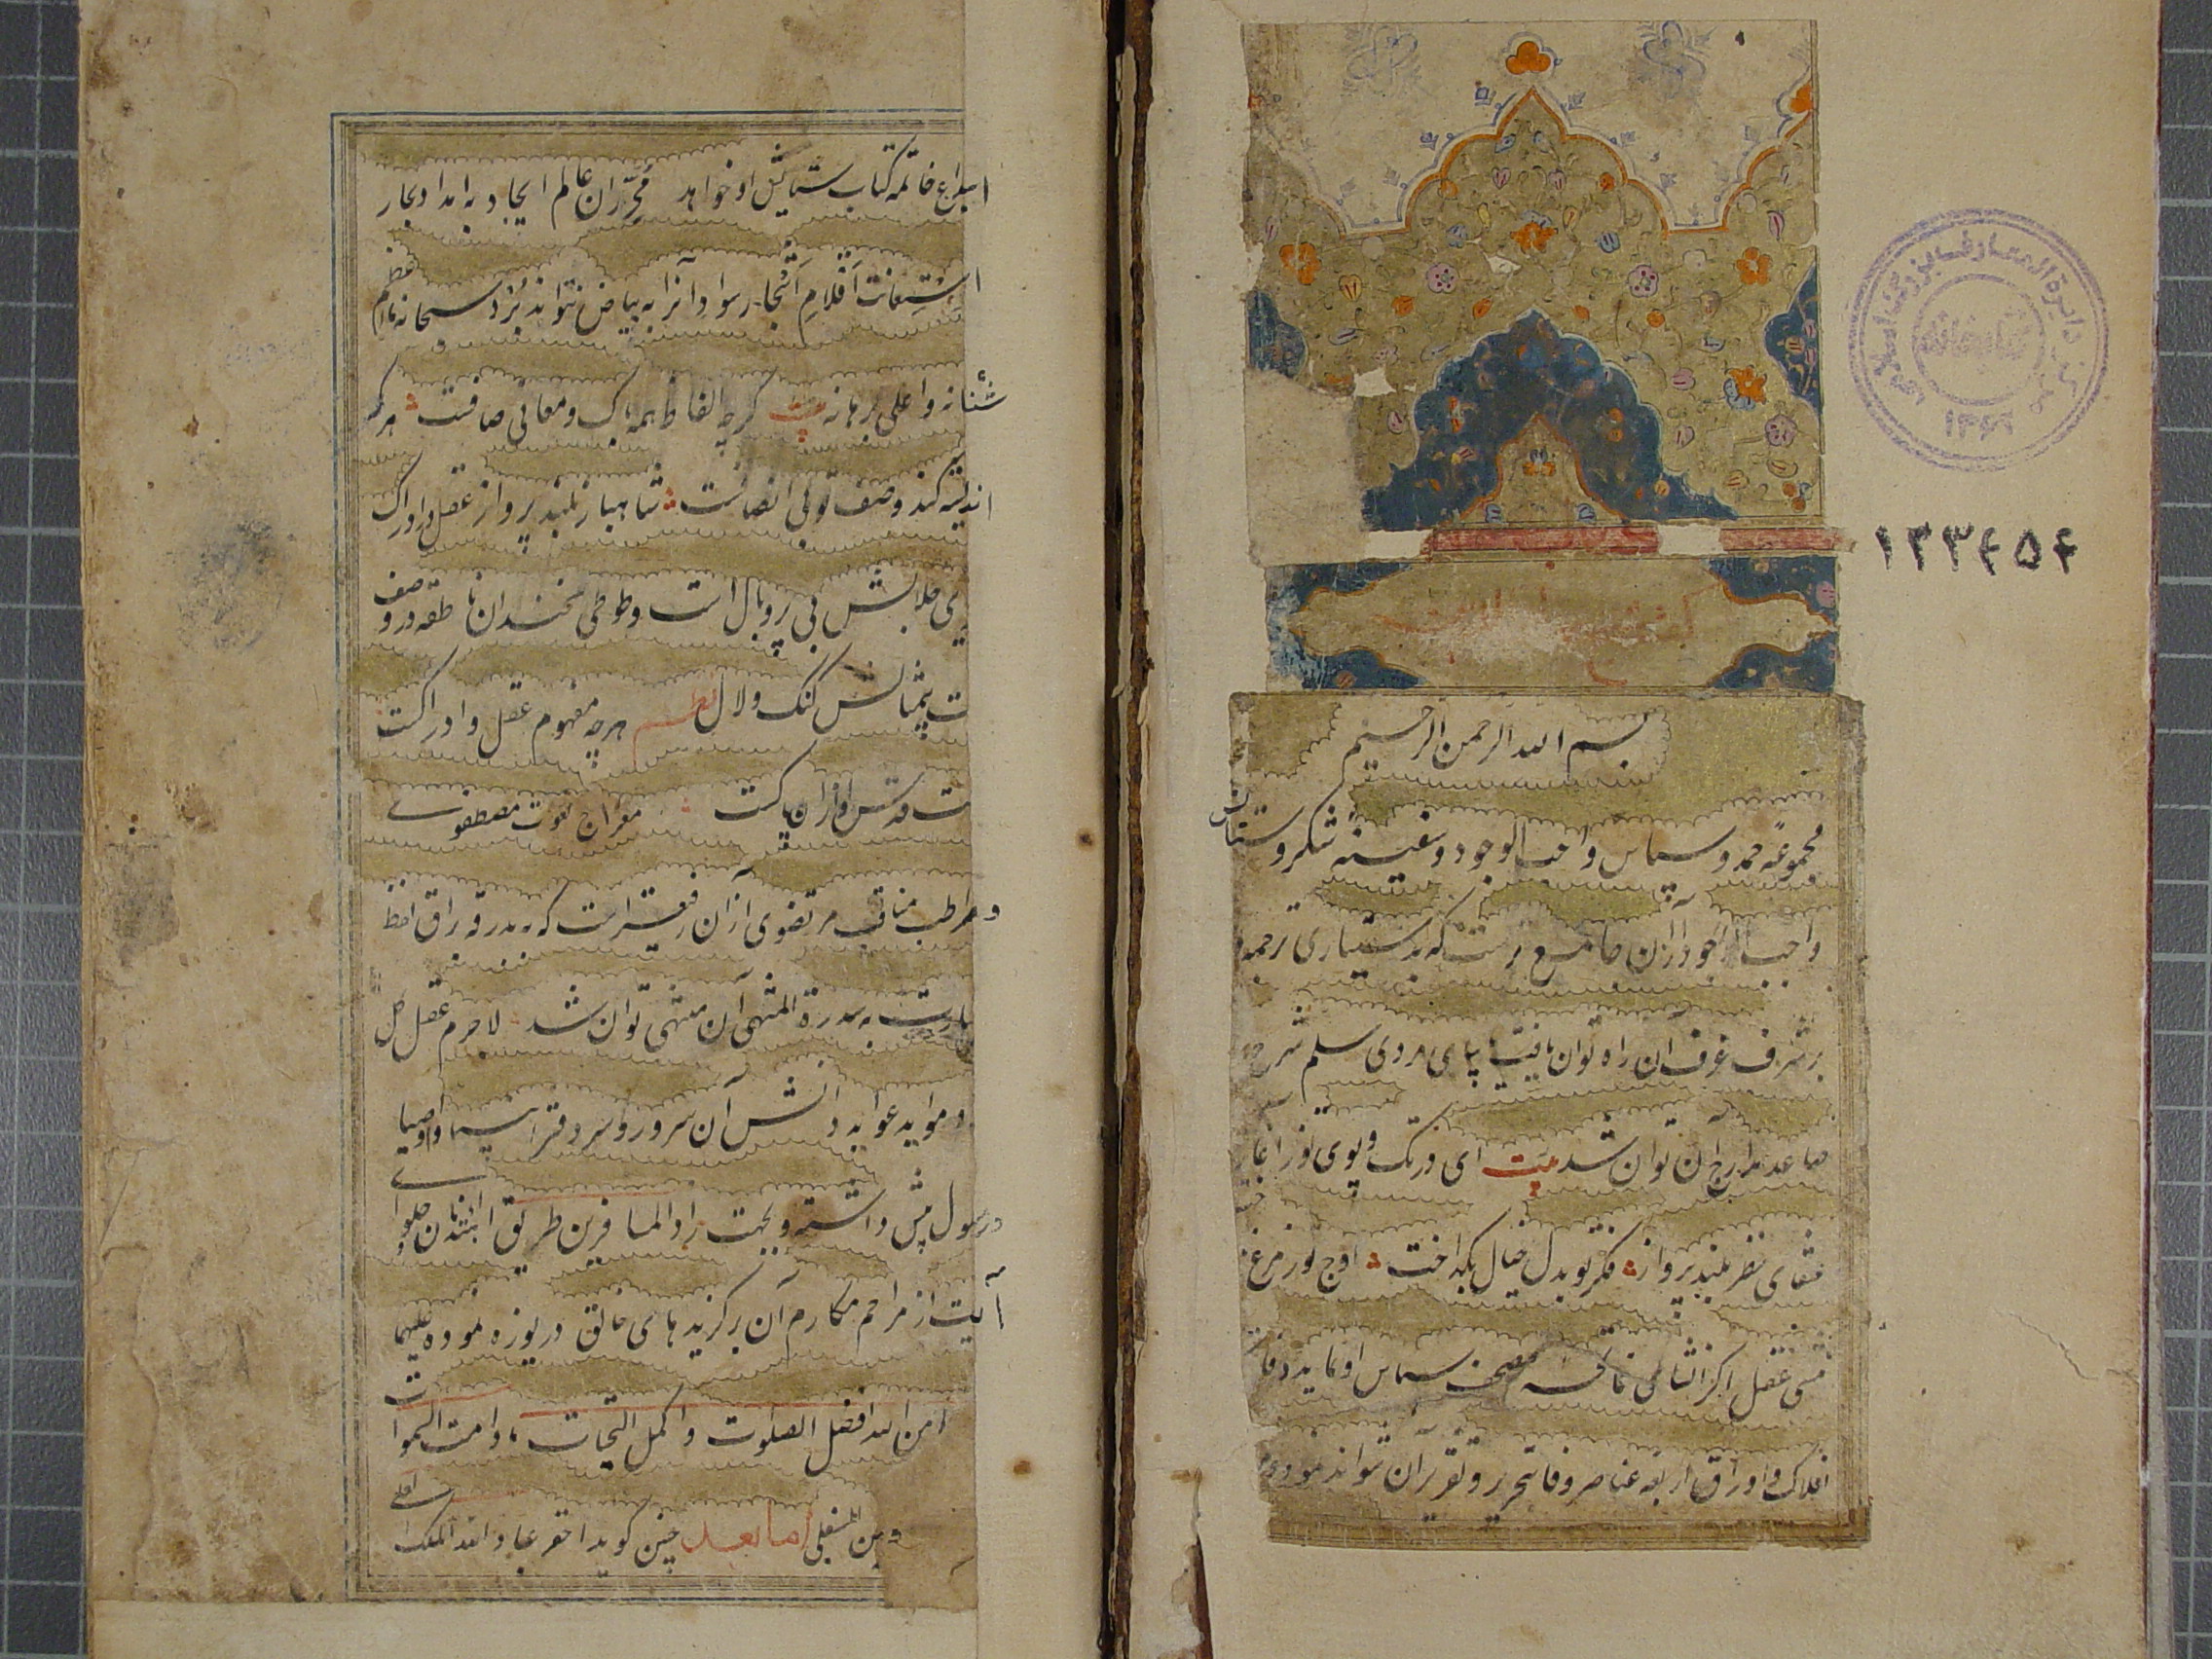 مرکز دایرة المعارف بزرگ اسلامی
کتابخانه
۱۳۶۶
۱۳۳۴۵۴
بسم الله الرحمن الرحیم
مجموعه حمد و سپاس واجب الوجود و سفینه شکر و ستایش
واجب الوجود از آن جامع ترست که بدستیاری ترجمه
بر شرف غرف آن راه توان یافت یا بپای مردی سلم شرح
صاعد مدارج آن توان شد بیت ای در تک و پوی تو ز آغاز
عنقای نظر بلند پرواز فکر تو بدل خیال بگداخت اوج تو ز مرغ
منشی عقل اگر انشای فاتحه مصحف سپاس او نماید دفاتر
افلاک و اوراق اربعه عناصر وفا بتحریر و تقریر آن نتواند نمود و
ابداع خاتمه کتاب ستایش او خواهد محرران عالم ایجاد به امداد بحار
استعانت اقلام اشجار سواد آنرا به بیاض نتواند برد سبحانه ما اعظم
شانه و اعلی برهانه بیت گرچه الفاظ همه پاک و معانی صافست هر که
اندیشه کند وصف تو بی انصافست شاهباز بلند پرواز عقل و ادراک
جلالش بی پر و بال است و طوطی سخندان ناطقه در وصف
بیمثالش گنگ و لال نظم هرچه مفهوم عقل و ادراکست
قدس او از آن پاکست معراج نعوت مصطفوی
مناقب مرتضوی از آن رفیعتر است که به بدرقه براق
به سدرة المنتهی آن منتهی توان شد لاجرم عقل کل
موائد عواید دانش آن سرور و سردفتر انبیا و اوصیا
پیش داشته و بجهت زاد المسافرین طریق
از مراحم مکارم آن برگزیدهای خالق دریوزه نموده علیهما
من الله افضل الصلوات و اکمل التحیات ما دامت السموات
اما بعد چنین گوید احقر عباد الله الملک